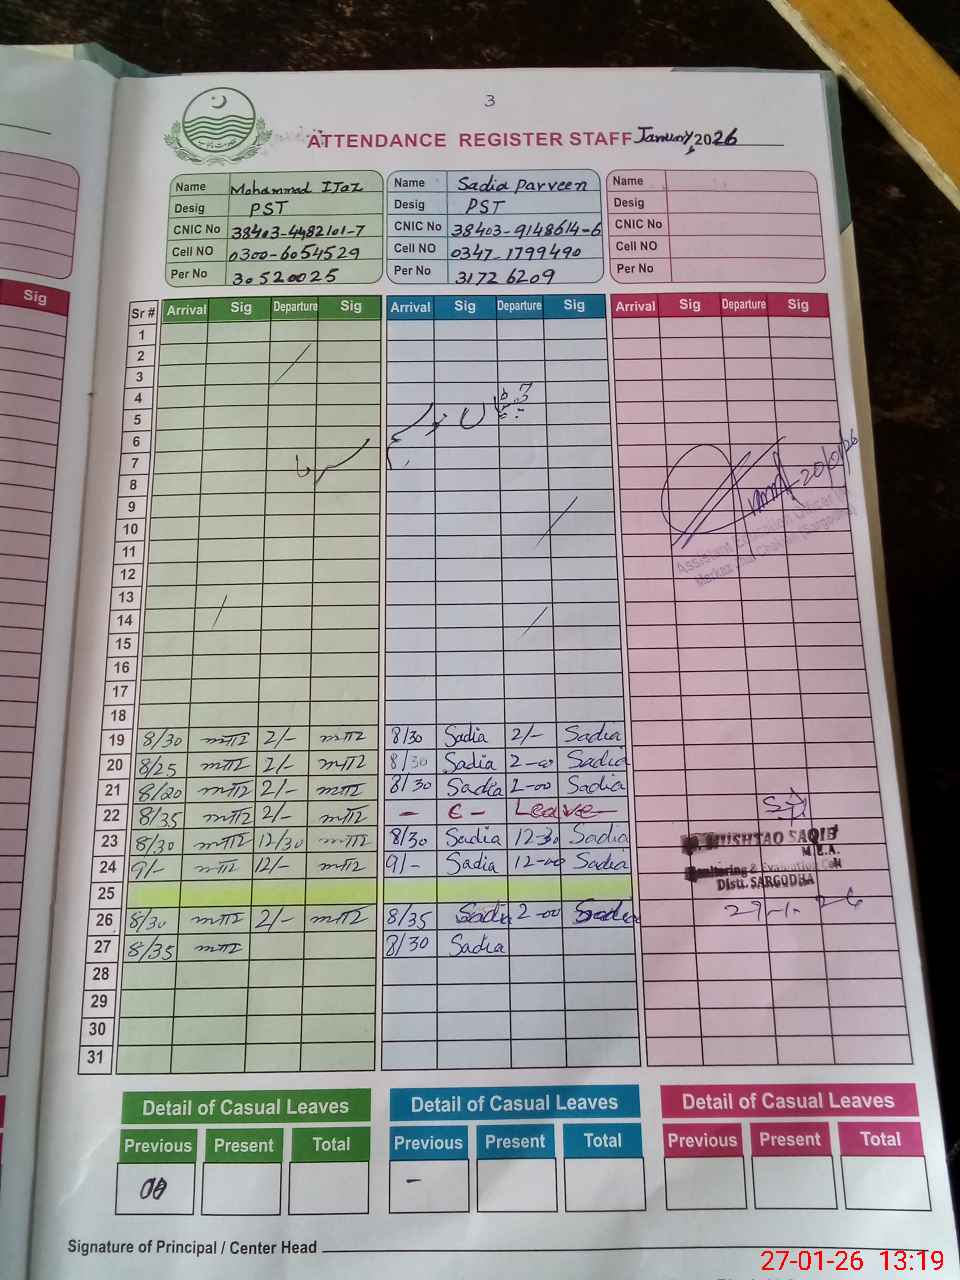 3
ATTENDANCE REGISTER STAFF January, 2026
Name Mohammad IJaz
Desig PST
CNIC No 38403-4482101-7
Cell NO 0300-6054529
Per No 30520025
Name Sadia Parveen
Desig PST
CNIC No 38403-9148614-6
Cell NO 0347-1799490
Per No 31726209
Name
Desig
CNIC No
Cell NO
Per No
Sig
Sr # Arrival Sig Departure Sig Arrival Sig Departure Sig Arrival Sig Departure Sig
1
2
3
4
5
6
7
8
20/01/26
9
10
11
12
13
14
15
16
17
18
19 8/30 2/- 8/30 Sadia 2/- Sadia
20 8/25 2/- 8/30 Sadia 2-00 Sadia
21 8/20 2/- 8/30 Sadia 2-00 Sadia
22 8/35 2/- - C- Leave-
23 8/30 12/30 8/30 Sadia 12-30 Sadia
24 9/- 12/- 9/- Sadia 12-00 Sadia
25
26 8/30 2/- 8/35 Sadia 2-00 Sadia
27 8/35 8/30 Sadia
28
29
30
31
MUSHTAQ SAQIB
M.E.A.
Monitoring & Evaluation Cell
Distt. SARGODHA
27-1-26
Detail of Casual Leaves Detail of Casual Leaves Detail of Casual Leaves
Previous Present Total Previous Present Total Previous Present Total
-
Signature of Principal / Center Head
27-01-26 13:19